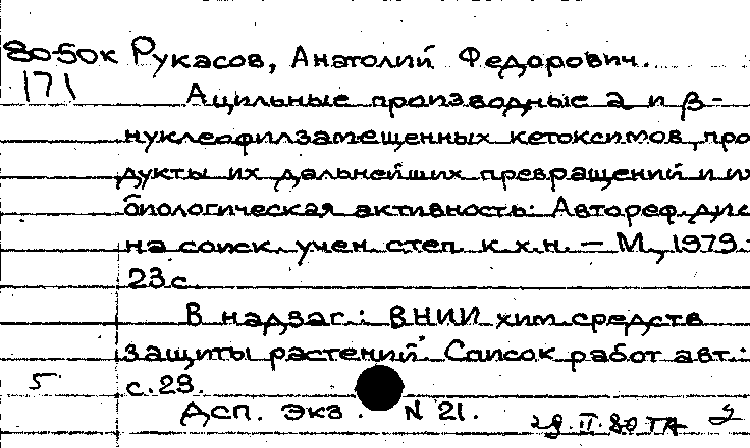 80-50к Рукасов, Анатолий Федорович.
171 Ацильные производные α и β-
нуклеофилзамещенных кетоксимов, про
дукты их дальнейших превращений и их
биологическая активность: Автореф. дис
на соиск. учен. степ. к.х.н. – М., 1979.-
23 с.
В надзаг.: ВНИИ хим. средств
защиты растений. Список работ авт.:
5 с. 23.
ДСП. Экз. N 21.
29.II.80